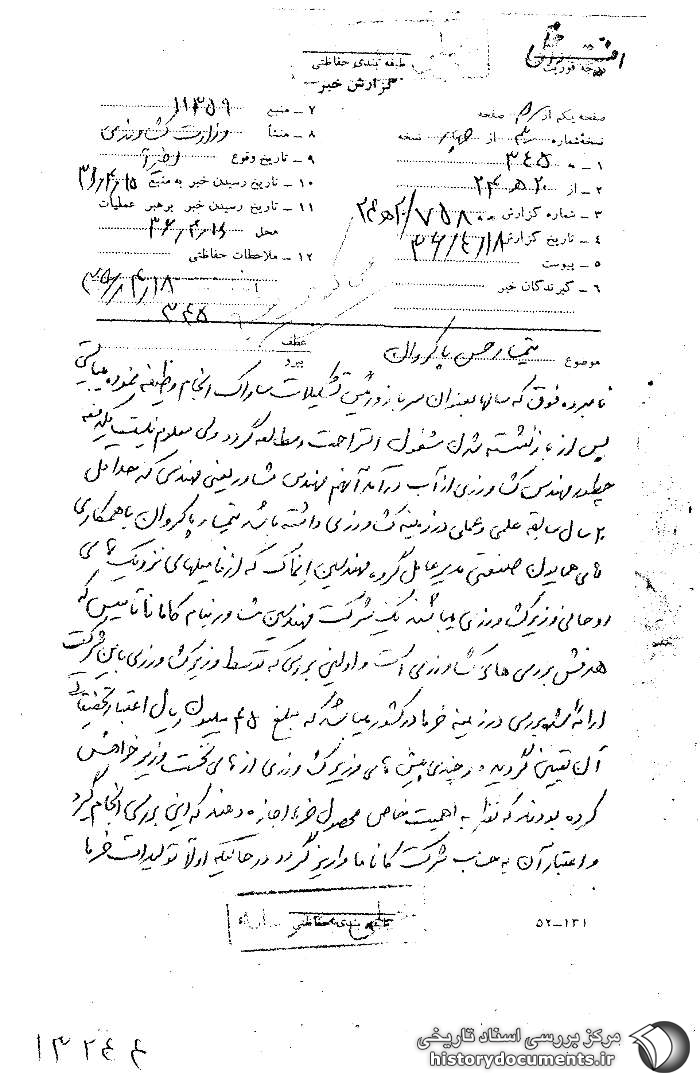 درجه فوریت
طبقه بندی حفاظتی
گزارش خبر
صفحه یکم از صفحه
نسخه شماره از چهار نسخه
۱ ـ به ۳۴۵
۲ ـ از ۲۰ ه ۲۴
۳ ـ شماره گزارش
۴ ـ تاریخ گزارش ۳۶/۴/۱۸
۵ ـ پیوست
۶ ـ گیرندگان خبر
۷ ـ منبع ۱۱۳۵۹
۸ ـ منشأ وزارت کشاورزی
۹ ـ تاریخ وقوع اخیراً
۱۰ ـ تاریخ رسیدن خبر به منبع
۱۱ ـ تاریخ رسیدن خبر برهبر عملیات
محل ۳۶/۴/۱۶
۱۲ ـ ملاحظات حفاظتی
۳۴۵
عطف
پیرو
موضوع تیمسار حسن پاکروان
نامبرده فوق که سالها بعنوان سرباز و رئیس تشکیلات ساواک انجام وظیفه نموده میبایستی
پس از بازنشسته شدن مشغول استراحت و مطالعه گردد ولی معلوم نیست یکدفعه
چطور مهندس کشاورزی از آب درآمد آنهم مهندس مشاور یعنی مهندسی که حداقل
۲۰ سال سابقه علمی و عملی در زمینه کشاورزی داشته باشد تیمسار پاکروان با همکاری
آقای همایون صنعتی مدیرعامل گروه مهندسین که از فامیلهای نزدیک آقای
روحانی وزیر کشاورزی میباشند یک شرکت مهندسین مشاور بنام کاماناتاسیس که
هدفش بررسی های کشاورزی است و اولین بررسی که توسط وزیر کشاورزی باین شرکت
ارائه شد بررسی در زمینه خرما در کشور میباشد که مبلغ ۴۵ میلیون ریال اعتبار تحقیقاتی
آن تعیین گردیده و چندی پیش آقای وزیر کشاورزی از آقای نخست وزیر خواهش
کرده بودند که نظر به اهمیت خاص محصول خرما اجازه دهند که این بررسی انجام گیرد
و اعتبار آن به حساب شرکت کاماناما واریز گردد در حالیکه اولاً تولیدات خرما
طبقه بندی حفاظتی
۵۲-۱۳۱
۱۳۲۴۴
مرکز بررسی اسناد تاریخی
historydocuments.ir